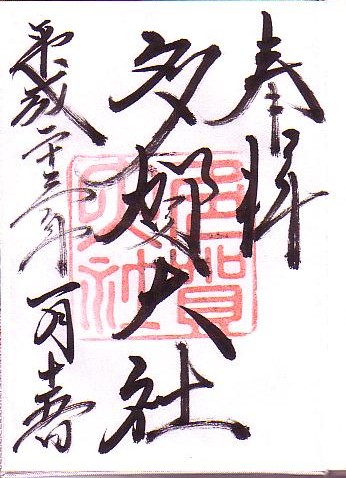 奉拝
多賀大社
平成二十三年一月十五日
多賀大社